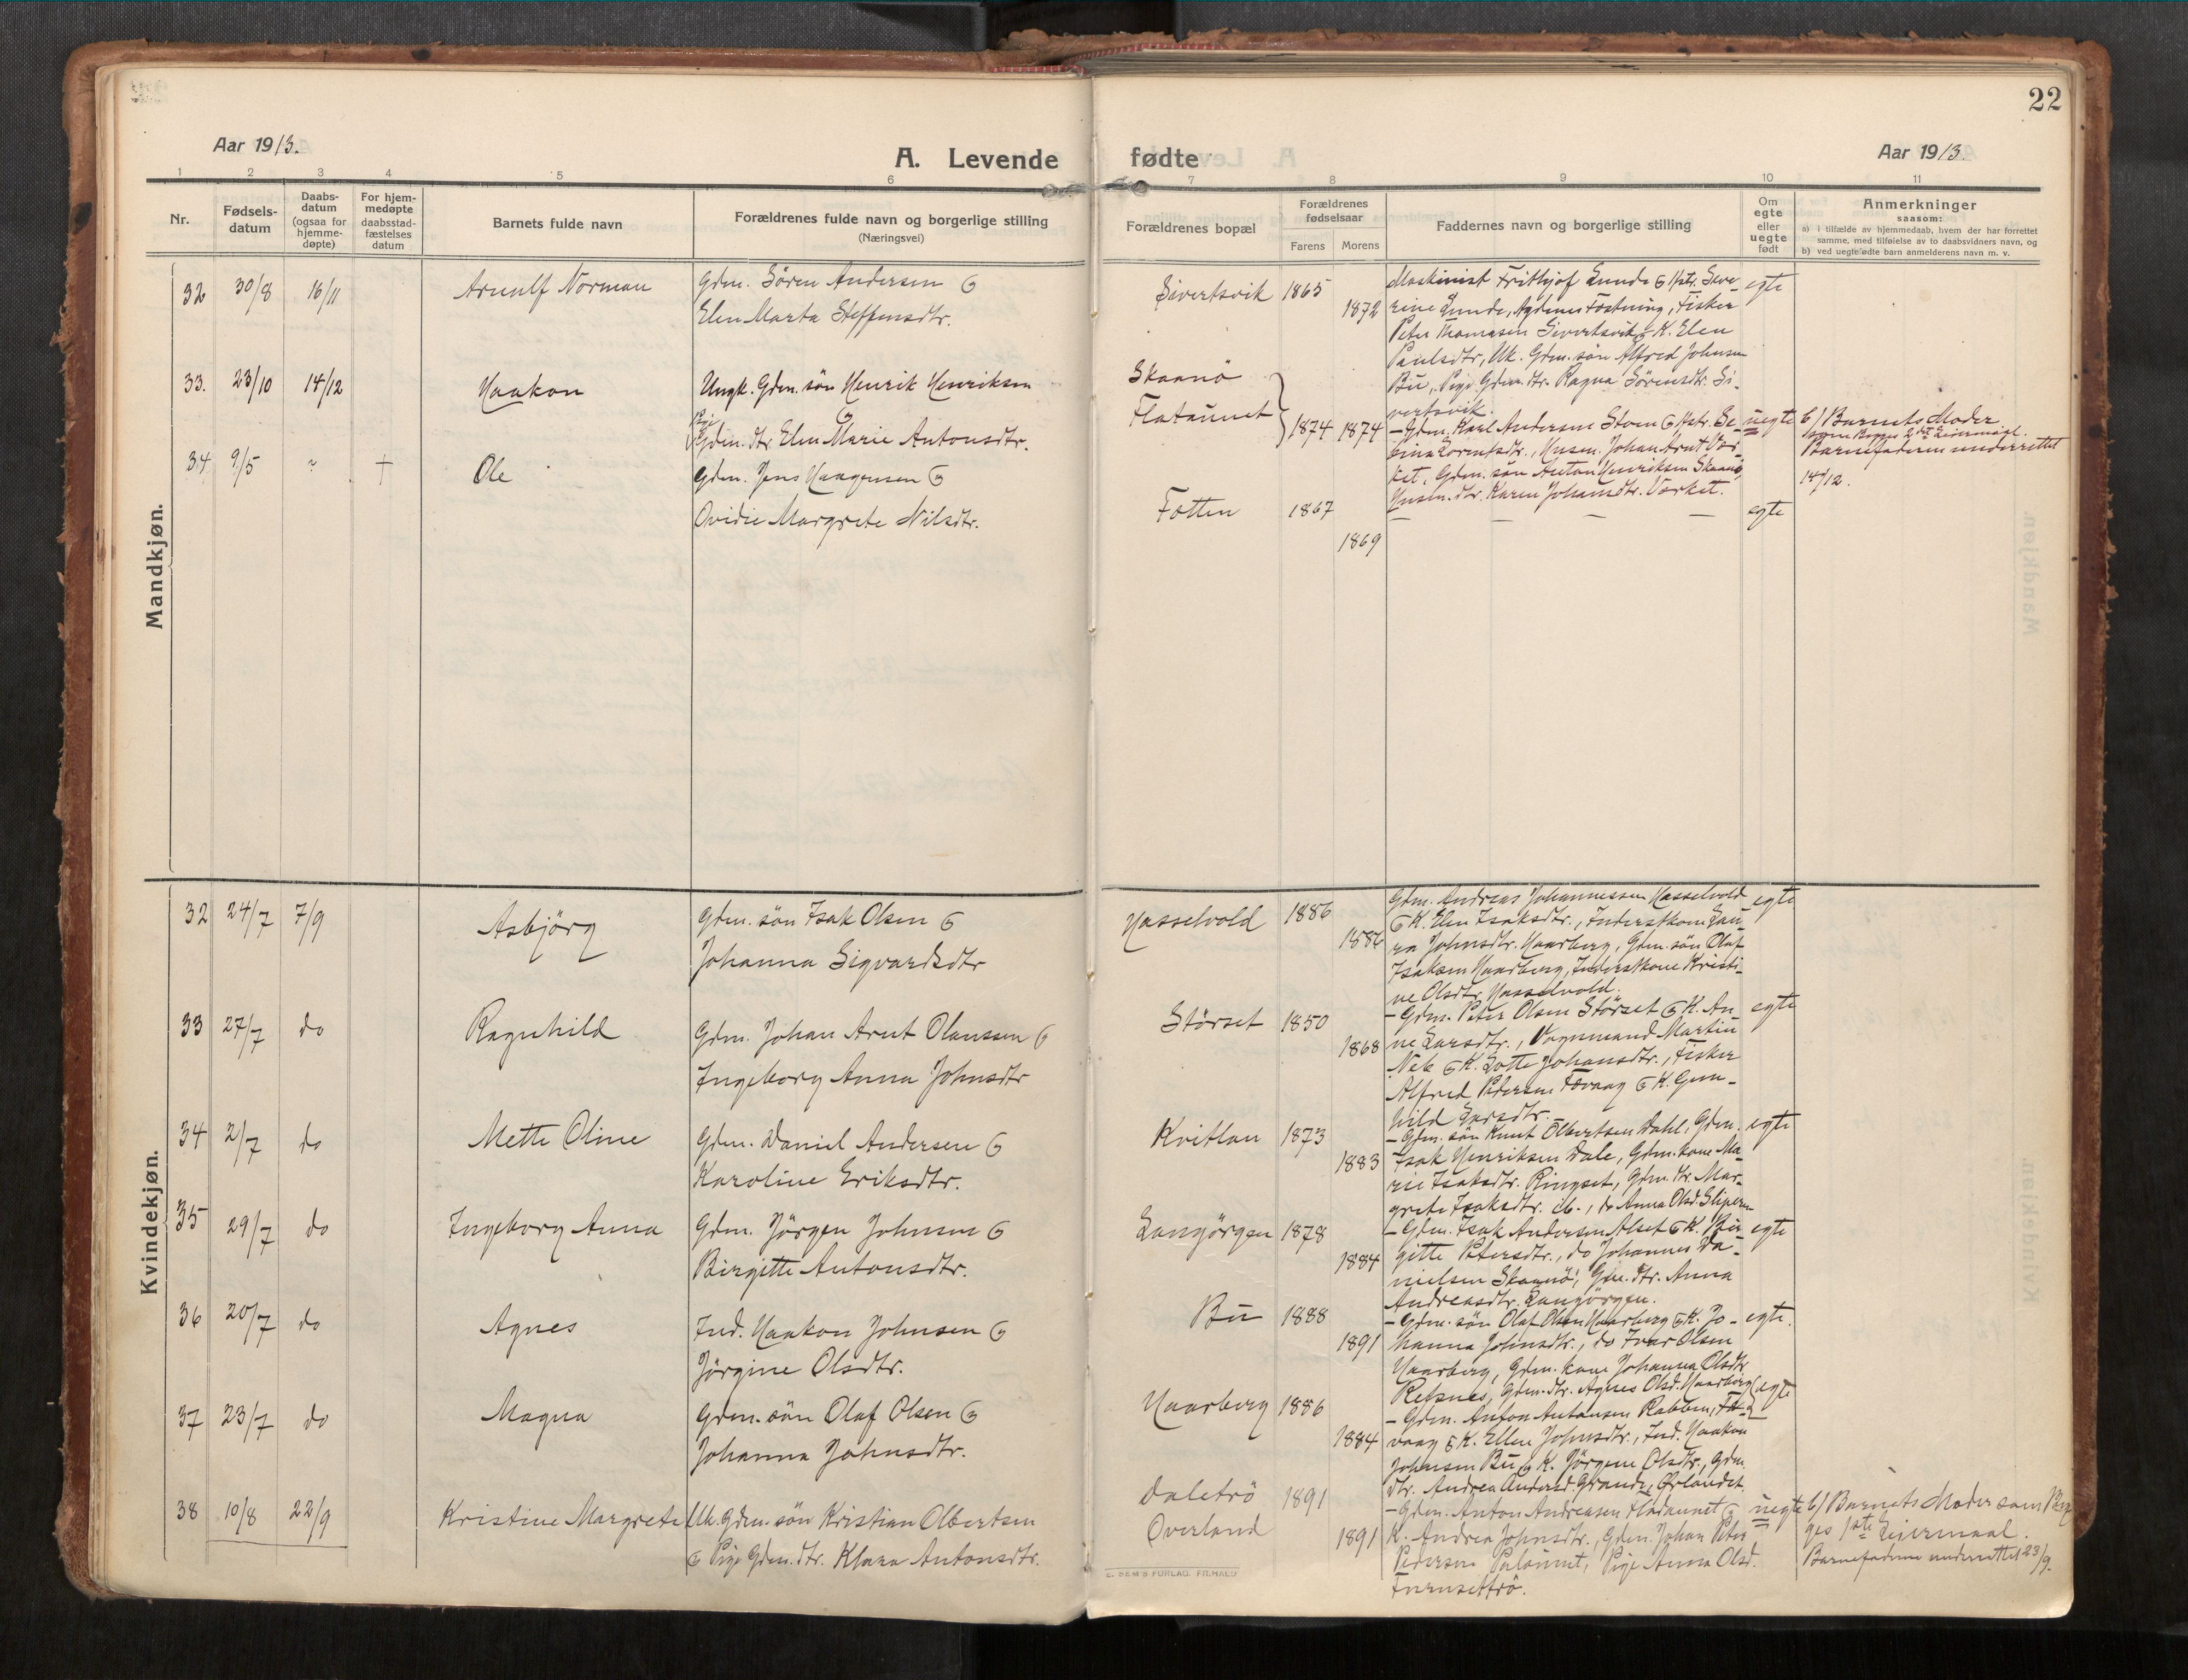 22
Aar 1913.
A. Levende fødte
Aar 1913.
1 2 3 4 5 6 7 8 9 10 11
Nr.
Fødsels-
datum
Daabs-
datum
(ogsaa for
hjemme-
døpte)
For hjem-
medøpte
daabsstad-
fæstelses
datum
Barnets fulde navn
Forældrenes fulde navn og borgerlige stilling
(Næringsvei)
Forældrenes bopæl
Forældrenes
fødselsaar
Farens Morens
Faddernes navn og borgerlige stilling
Om
egte
eller
uegte
født
Anmerkninger
saasom:
a) i tilfælde av hjemmedaab, hvem der har forrettet
samme, med tilføielse av to daabsvidners navn, og
b) ved uegtefødte barn anmelderens navn m. v.
Mandkjøn.
32 30/8 16/11 Arnulf Norman
Gdm. Sören Andersen G
Elen Marta Steffensdtr.
Sivertsvik 1865
1872
Maskinist Frithjof Lunde G Hstr. Seve-
rine Lunde, Agdenes Fæstning, Fisker
Peter Thomasen Sivertsvik G K. Elen
Paulsdtr, Uk. Gdm. sön Alfred Johnsen
Bu, Pige Gdm. dtr. Ragna Sörensdtr. Si-
vertsvik.
egte
33. 23/10 14/12 Haakon
Ungk. Gdm. sön Henrik Henriksen
G
Pige
Gdm. dtr Elen Marie Antonsdtr.
Skaanö
Flataunet
1874 1874
- Gdm. Karl Andersen Stoen G Hstr. Se-
rina Lorntsdtr., Husm. Johan Arnt Vor-
ket, Gdm. sön Anton Henriksen Skaanö,
Husm. dtr. Karen Johansdtr. Vorket.
uegte
b) Barnets Moder
som Piges 2det Leiermaal.
Barnefaderen underrettet
14/12.
34 9/5 + Ole
Gdm. Jens Haagensen G
Ovidie Margrete Nilsdtr.
Fotten 1867
1869
— — — —
egte
Kvindekjøn.
32 24/7 7/9 Asbjörg
Gdm. sön Isak Olsen G
Johanna Sigvardsdtr
Hasselvold 1886
1886
Gdm. Andreas Johannessen Hasselvold
G K. Elen Isaksdtr., Inderstkone Lau-
ra Johnsdtr. Haarberg, Gdm. sön Olaf
Isaksen Haarberg, Inderstkone Kristi-
ne Olsdtr. Hasselvold.
egte
33 27/7 do Ragnhild
Gdm. Johan Arnt Olaussen G
Ingeborg Anna Johnsdtr
Störset 1850
1868
- Gdm. Peter Olsen Störset G K. An-
ne Larsdtr., Vognmand Martin
Neb G K. Lotte Johansdtr., Fisker
Alfred Pedersen Fævaag G K. Gun-
hild Larsdtr.
egte
34 2/7 do Mette Oline
Gdm. Daniel Andersen G
Karoline Eriksdtr.
Kvitlan 1873
1883
- Gdm. sön Knut Olbertsen Dahl, Gdm.
Isak Henriksen Dale, Gdm. kone Ma-
rie Isaksdtr. Ringset, Gdm. dtr. Mar-
grete Isaksdtr. ib., do Anna Olsd. Slipern
egte
35 29/7 do Ingeborg Anna
Gdm. Jörgen Johnsen G
Birgitte Antonsdtr.
Langörgen 1878
1884
- Gdm. Isak Andersen Alset G K. Bir-
gitte Petersdtr., do Johannes Da-
nielsen Skaanö, Gdm. dtr. Anna
Andreasdtr. Langörgen.
egte
36 20/7 do Agnes
Ind. Haakon Johnsen G
Jörgine Olsdtr.
Bu 1888
1891
- Gdm. sön Olaf Olsen Haarberg G K. Jo-
hanna Johnsdtr., do Ivar Olsen
Haarberg, Gdm. kone Johanna Olsdtr
Refsnes, Gdm. dtr. Agnes Olsd. Haarberg
egte.
37 23/7 do Magna
Gdm. sön Olaf Olsen G
Johanna Johnsdtr.
Haarberg 1886
1884
- Gdm. Anton Antonsen Rabben, Fæ-
vaag G K. Ellen Johnsdtr., Ind. Haakon
Johnsen Bu G K. Jörgine Olsdtr., Gdm.
dtr. Andrea Andersd. Grande, Ørlandet.
egte
38 10/8 22/9 Kristine Margrete
Uk. Gdm. sön Kristian Olbertsen
G Pige Gdm. dtr. Klara Antonsdtr.
Daletrö 1891
Overland 1891
- Gdm. Anton Andreasen Fladaunet G
K. Andrea Johnsdtr., Gdm. Johan Peter
Pedersen, Pige Anna Olsd.
uegte
b) Barnets Moder som Pi-
ges 1ste Leiermaal.
Barnefaderen underrettet 23/9.
E. SEM'S FORLAG. FR.HALD